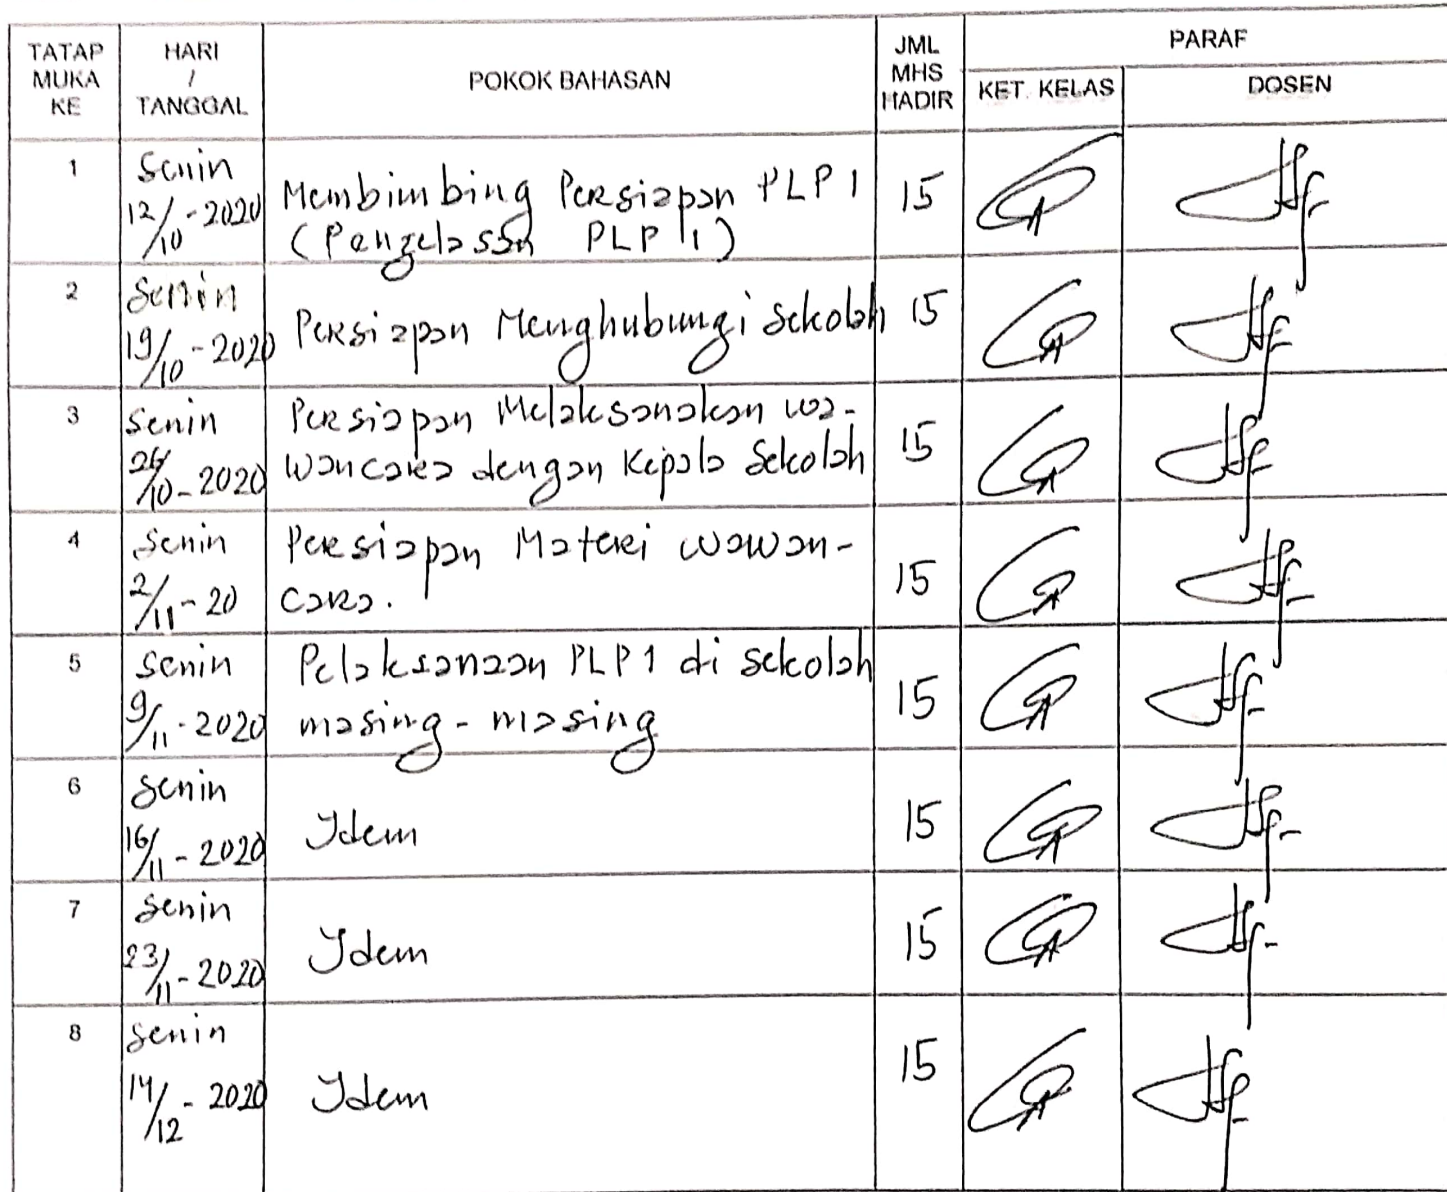 TATAP MUKA KE | HARI / TANGGAL | POKOK BAHASAN | JML MHS HADIR | PARAF
KET. KELAS | DOSEN
1 | Senin 12/10-2020 | Membimbing Persiapan PLP 1 | 15
(Pengelasan PLP 1)
2 | Senin 19/10-2020 | Persiapan Menghubungi Sekolah | 15
3 | Senin 26/10-2020 | Persiapan Melaksanakan wa-
wancara dengan Kepala Sekolah | 15
4 | Senin 2/11-20 | Persiapan Materi wawan-
cara. | 15
5 | Senin 9/11-2020 | Pelaksanaan PLP 1 di sekolah
masing-masing | 15
6 | Senin 16/11-2020 | Idem | 15
7 | Senin 23/11-2020 | Idem | 15
8 | Senin 14/12-2020 | Idem | 15